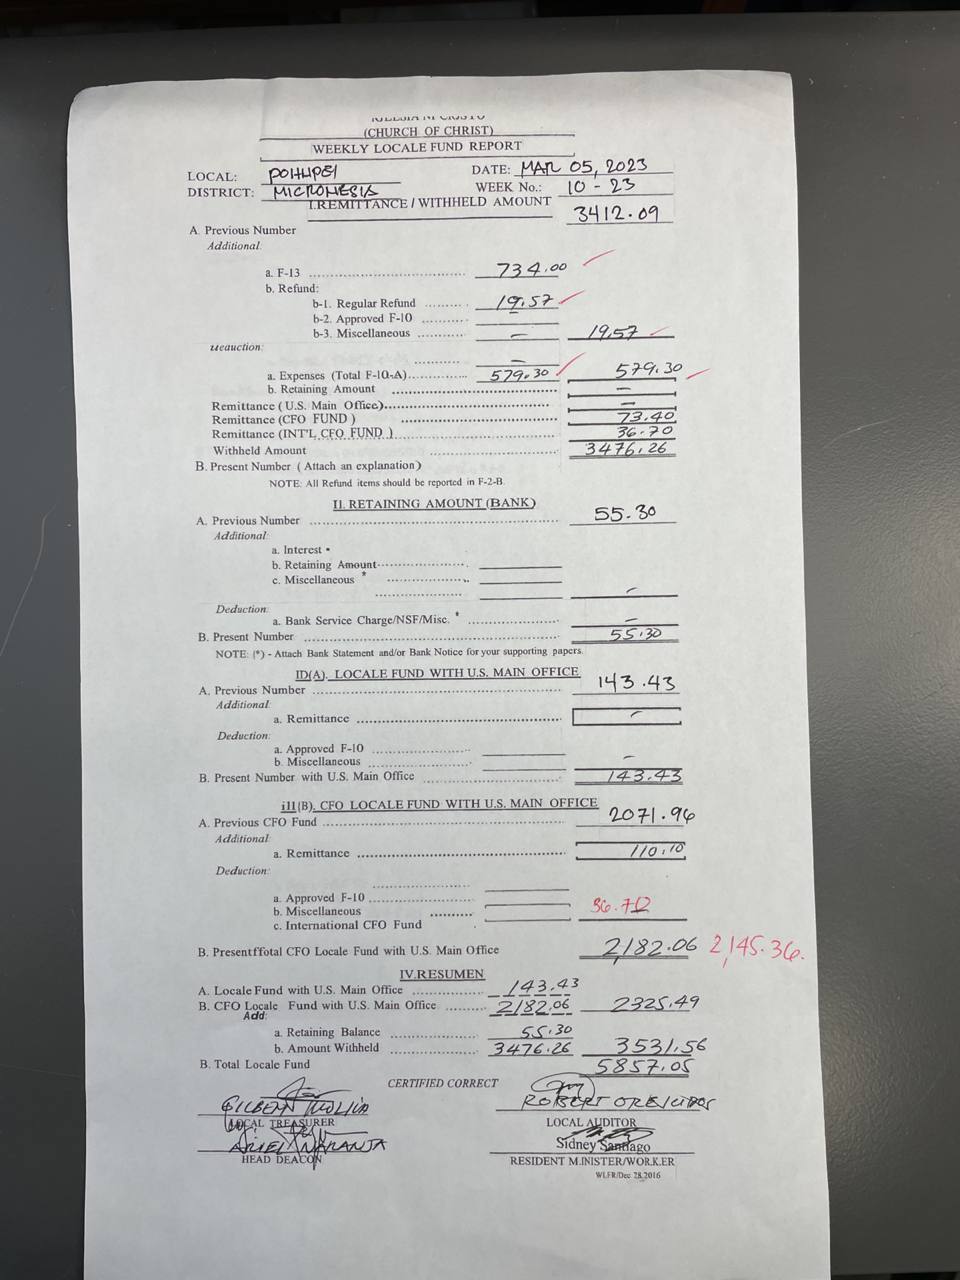 IGLESIA NI CRISTO
(CHURCH OF CHRIST)
WEEKLY LOCALE FUND REPORT
LOCAL: POHNPEI DATE: MAR 05, 2023
DISTRICT: MICRONESIA WEEK No.: 10 - 23
I.REMITTANCE / WITHHELD AMOUNT 3412.09
A. Previous Number
Additional:
a. F-13 734.00
b. Refund:
b-1. Regular Refund 19.57
b-2. Approved F-10
b-3. Miscellaneous - 19.57
ueauction: -
a. Expenses (Total F-10-A) 579.30 579.30
b. Retaining Amount -
Remittance (U.S. Main Office) -
Remittance (CFO FUND ) 73.40
Remittance (INT'L CFO FUND ) 36.70
Withheld Amount 3476.26
B. Present Number ( Attach an explanation)
NOTE: All Refund items should be reported in F-2-B.
II. RETAINING AMOUNT (BANK) 55.30
A. Previous Number
Additional:
a. Interest •
b. Retaining Amount
c. Miscellaneous *
-
Deduction:
a. Bank Service Charge/NSF/Misc. * -
B. Present Number 55.30
NOTE: (*) - Attach Bank Statement and/or Bank Notice for your supporting papers.
ID(A). LOCALE FUND WITH U.S. MAIN OFFICE
A. Previous Number 143.43
Additional:
a. Remittance -
Deduction:
a. Approved F-10
b. Miscellaneous -
B. Present Number with U.S. Main Office 143.43
ill(B). CFO LOCALE FUND WITH U.S. MAIN OFFICE
A. Previous CFO Fund 2071.96
Additional:
a. Remittance 110.10
Deduction:
a. Approved F-10
b. Miscellaneous 36.70
c. International CFO Fund
B. Presentffotal CFO Locale Fund with U.S. Main Office 2,182.06 2,145.36.
IV.RESUMEN
A. Locale Fund with U.S. Main Office 143.43
B. CFO Locale Fund with U.S. Main Office 2182.06 2325.49
Add:
a. Retaining Balance 55.30
b. Amount Withheld 3476.26 3531.56
B. Total Locale Fund 5857.05
CERTIFIED CORRECT
LOCAL TREASURER LOCAL AUDITOR
ARIEL NARANJA Sidney Santiago
HEAD DEACON RESIDENT M.INISTER/WORK.ER
WLFR/Dec 28.2016